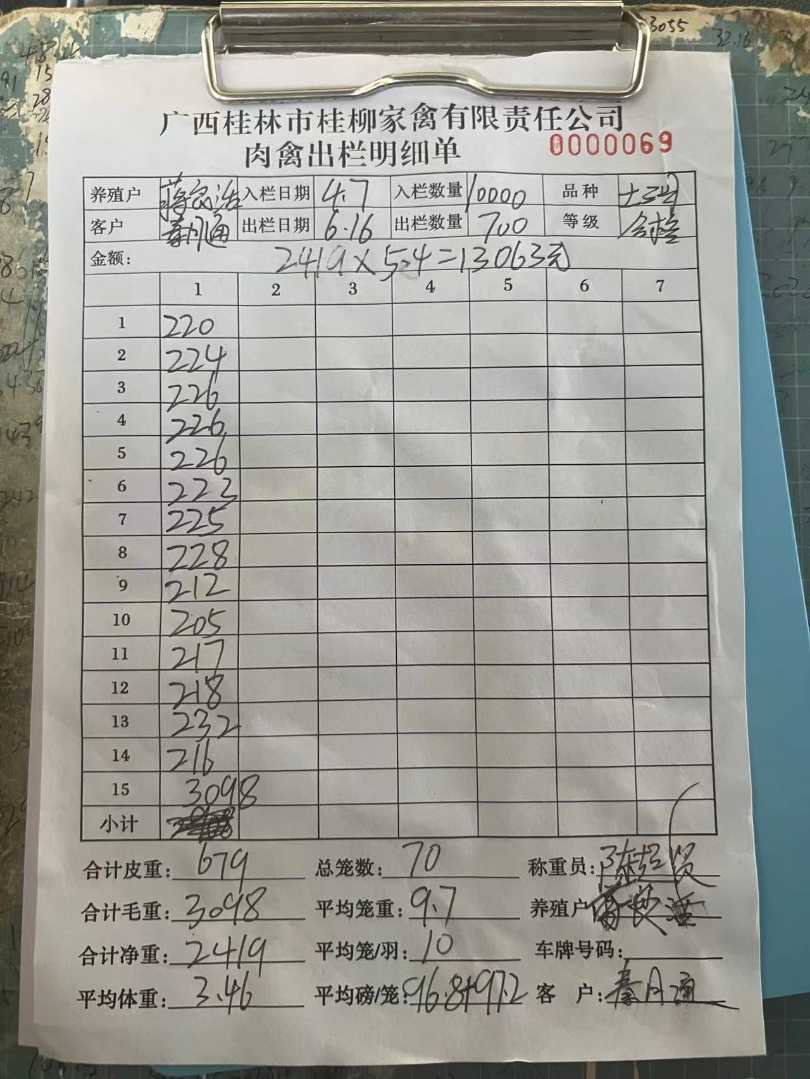 广西桂林市桂柳家禽有限责任公司
肉禽出栏明细单 0000069
养殖户 入栏日期 4.7 入栏数量 10000 品种 土
客户 秦月通 出栏日期 6.16 出栏数量 700 等级 合格
金额: 2419×5.4=13063元
1 2 3 4 5 6 7
1 220
2 224
3 226
4 226
5 226
6 223
7 225
8 228
9 212
10 205
11 217
12 218
13 232
14 216
15 3098
小计
合计皮重: 679 总笼数: 70 称重员: 陈超贤
合计毛重: 3098 平均笼重: 9.7 养殖户
合计净重: 2419 平均笼/羽: 10 车牌号码:
平均体重: 3.46 平均磅/笼: 96.8+97.2 客 户: 秦月通